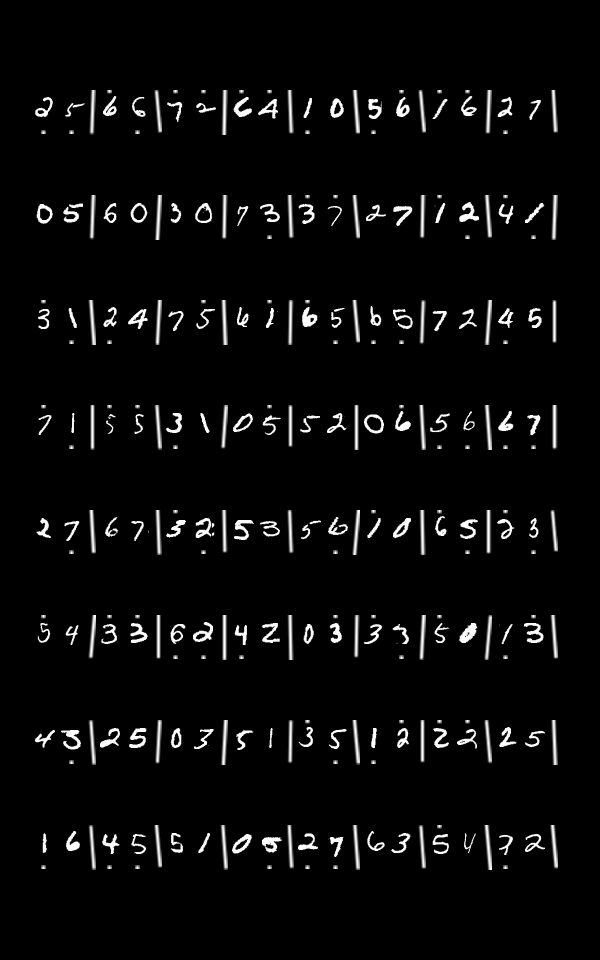 2 5 | 6 6 | 7 2 | 6 4 | 1 0 | 5 6 | 1 6 | 2 7 |
0 5 | 6 0 | 3 0 | 7 3 | 3 7 | 2 7 | 1 2 | 4 1 |
3 1 | 2 4 | 7 5 | 6 1 | 6 5 | 6 5 | 7 2 | 4 5 |
7 1 | 5 5 | 3 1 | 0 5 | 5 2 | 0 6 | 5 6 | 6 7 |
2 7 | 6 7 | 3 2 | 5 3 | 5 6 | 1 0 | 6 5 | 2 3 |
5 4 | 3 3 | 6 2 | 4 2 | 0 3 | 3 3 | 5 0 | 1 3 |
4 3 | 2 5 | 0 3 | 5 1 | 3 5 | 1 2 | 2 2 | 2 5 |
1 6 | 4 5 | 5 1 | 0 5 | 2 7 | 6 3 | 5 4 | 7 2 |